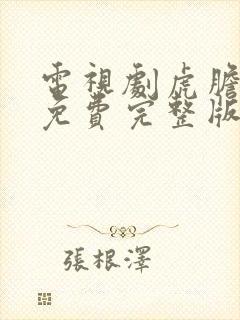 電視劇虎膽
免費完整版
張根澤